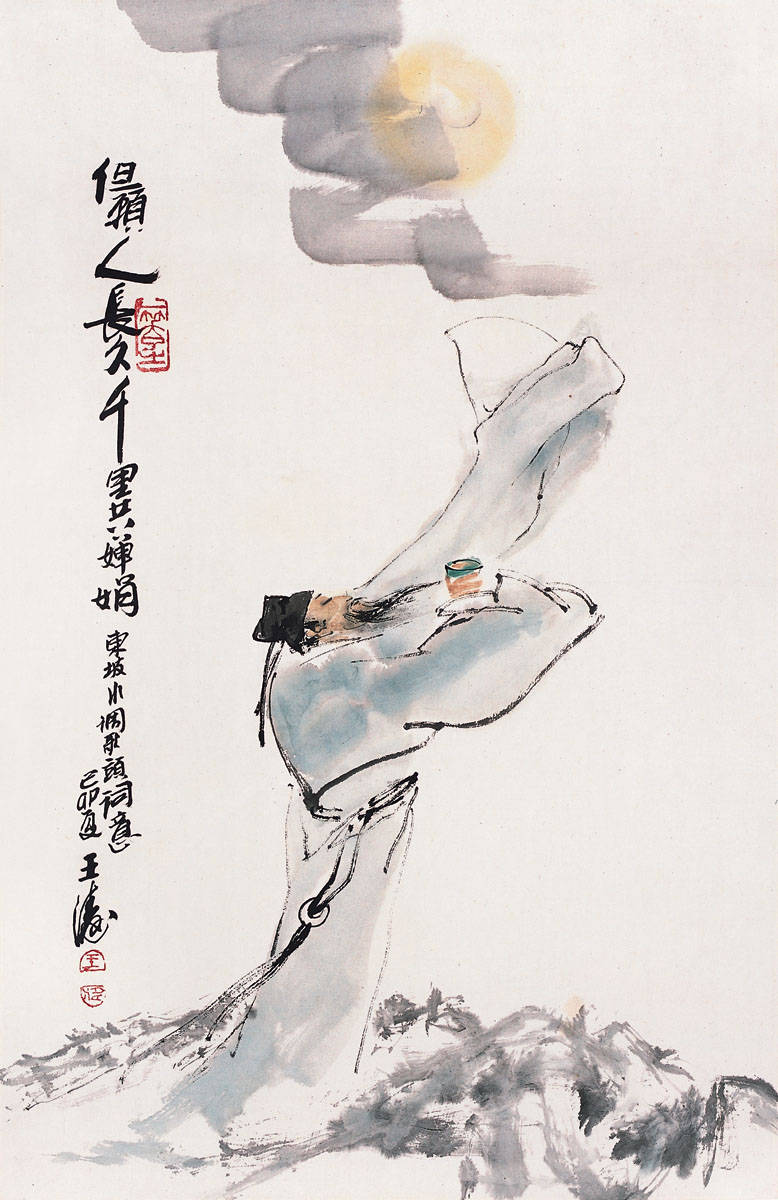 但願人長久千里共嬋娟
東坡水調歌頭詞意
己卯夏 王濤